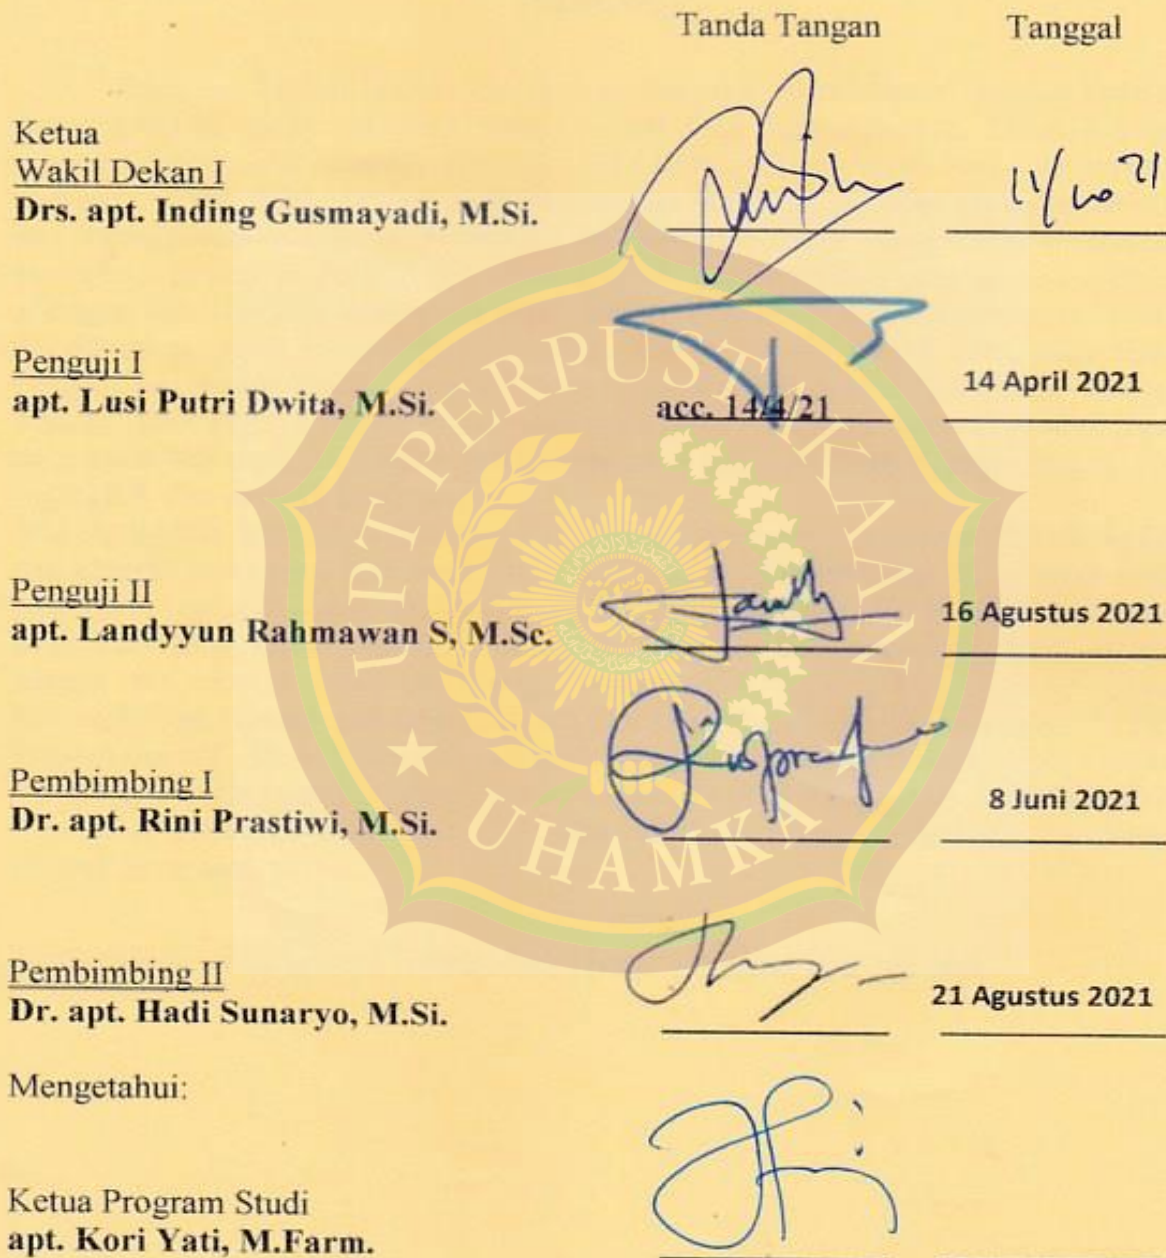 Tanda Tangan Tanggal
Ketua
Wakil Dekan I
Drs. apt. Inding Gusmayadi, M.Si.
11/10 21
Penguji I
apt. Lusi Putri Dwita, M.Si.
acc. 14/4/21
14 April 2021
Penguji II
apt. Landyyun Rahmawan S, M.Sc.
16 Agustus 2021
Pembimbing I
Dr. apt. Rini Prastiwi, M.Si.
8 Juni 2021
Pembimbing II
Dr. apt. Hadi Sunaryo, M.Si.
21 Agustus 2021
Mengetahui:
Ketua Program Studi
apt. Kori Yati, M.Farm.
UPT PERPUSTAKAAN
UHAMKA